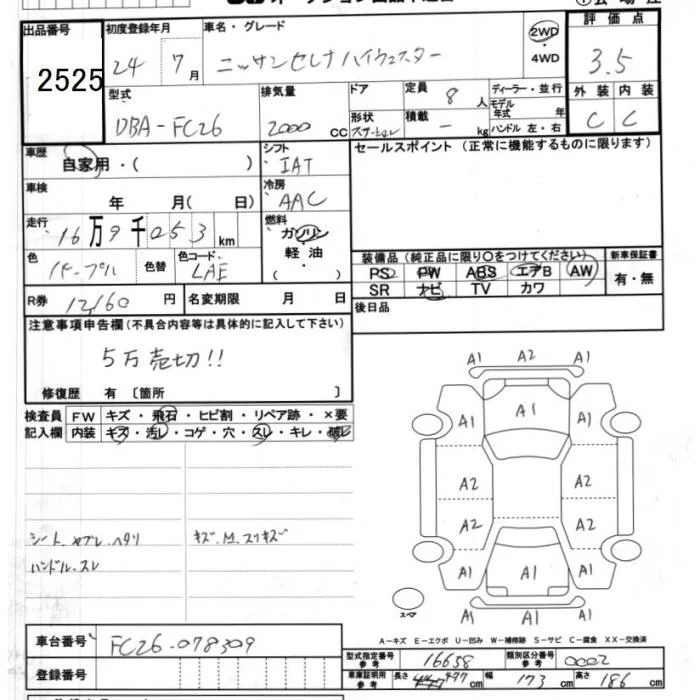 出品番号
2525
初度登録年月
24 7月
車名・グレード
ニッサンセレナハイウェスター
2WD
・
4WD
評価点
3.5
外装 内装
C C
型式
DBA-FC26
排気量
2000 CC
ドア
形状
ステーション
定員 8 人
積載 - kg
ディーラー・並行
モデル年式 年
ハンドル 左・右
車歴
自家用・( )
シフト
IAT
セールスポイント(正常に機能するものに限ります)
車検
年 月( 日)
冷房
AAC
走行
16万9千053 km
燃料
ガソリン
軽油
( )
色
パープル
色替
色コード
LAE
装備品(純正品に限り○をつけてください)
PS PW ABS エアB AW
SR ナビ TV カワ
新車保証書
有・無
R券 12160 円
名変期限 月 日
後日品
注意事項申告欄(不具合内容等は具体的に記入して下さい)
5万売切!!
修復歴 有〔箇所 〕
検査員記入欄
FW キズ・飛石・ヒビ割・リペア跡・×要
内装 キズ・汚レ・コゲ・穴・スレ・キレ・破レ
シート、ヤブレ、ヘタリ
キズ、M、スリキズ
ハンドル、スレ
A1 A2 A1
A1 A1 A1
A2 A2
A2 A2
A1 A1
A1 A1 A1
スペア
A-キズ E-エクボ U-凹み W-補修跡 S-サビ C-腐食 XX-交換済
車台番号
FC26-078309
登録番号
型式指定番号
参考
16658
類別区分番号
参考
0002
車庫証明用
参考
長さ 477 cm
幅 173 cm
高さ 186 cm